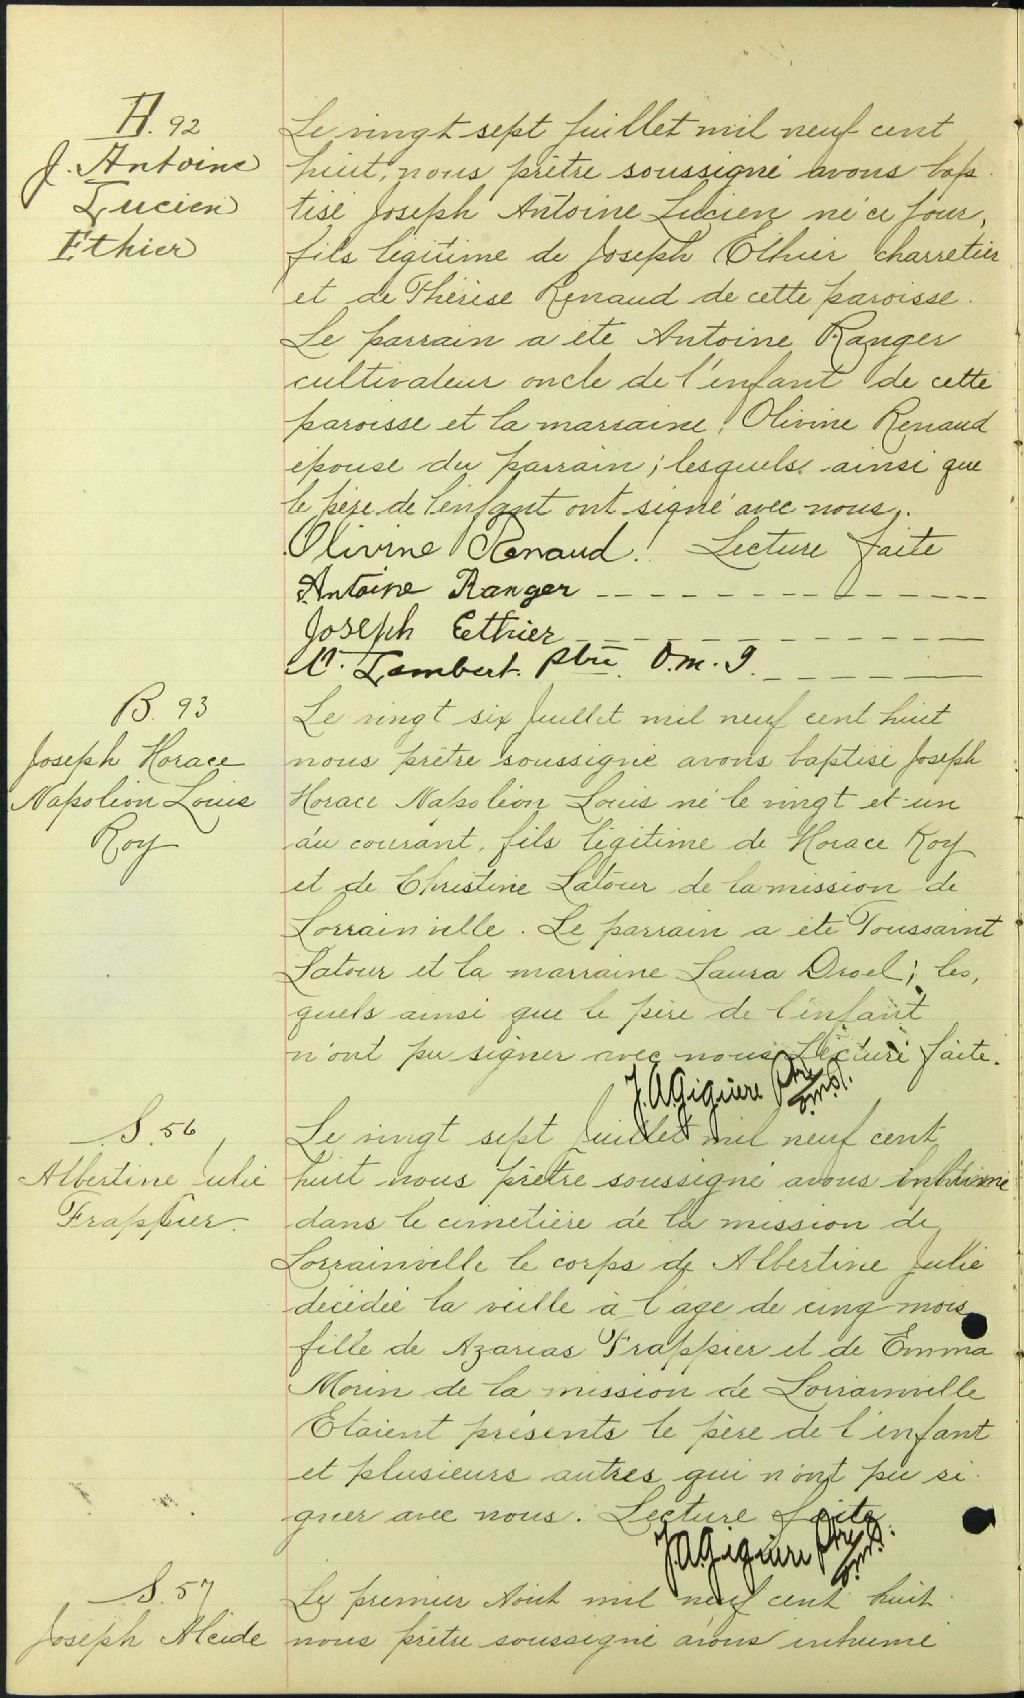 B. 92
J. Antoine
Lucien
Ethier
Le vingt sept Juillet mil neuf cent
huit, nous prêtre soussigné avons bap
tisé Joseph Antoine Lucien né ce jour,
fils légitime de Joseph Ethier charretier
et de Thérèse Renaud de cette paroisse.
Le parrain a été Antoine Ranger
cultivateur oncle de l'enfant de cette
paroisse et la marraine, Olivine Renaud
épouse du parrain; lesquels ainsi que
le père de l'enfant ont signé avec nous.
Olivine Renaud. Lecture faite
Antoine Ranger
Joseph Eethier
Lambert. ptre O.m.I.
B. 93
Joseph Horace
Napoléon Louis
Roy
Le vingt six Juillet mil neuf cent huit
nous prêtre soussigné avons baptisé Joseph
Horace Napoléon Louis né le vingt et un
du courant, fils légitime de Horace Roy
et de Christine Latour de la mission de
Lorrainville. Le parrain a été Toussaint
Latour et la marraine Laura Droel; les,
quels ainsi que le père de l'enfant
n'ont pu signer avec nous Lecture faite.
J.A. Giguère Ptre
o.m.I.
S. 56
Albertine Julie
Frappier.
Le vingt sept Juillet mil neuf cent
huit nous prêtre soussigné avons inhumé
dans le cimetière de la mission de
Lorrainville le corps de Albertine Julie
décédée la veille à l'age de cinq mois
fille de Azarias Frappier et de Emma
Morin de la mission de Lorrainville
Etaient présents le père de l'enfant
et plusieurs autres qui n'ont pu si
gner avec nous. Lecture faite
J.A. Giguère Ptre
o.m.I.
S. 57
Joseph Alcide
Le premier Aout mil neuf cent huit
nous prêtre soussigné avons inhumé